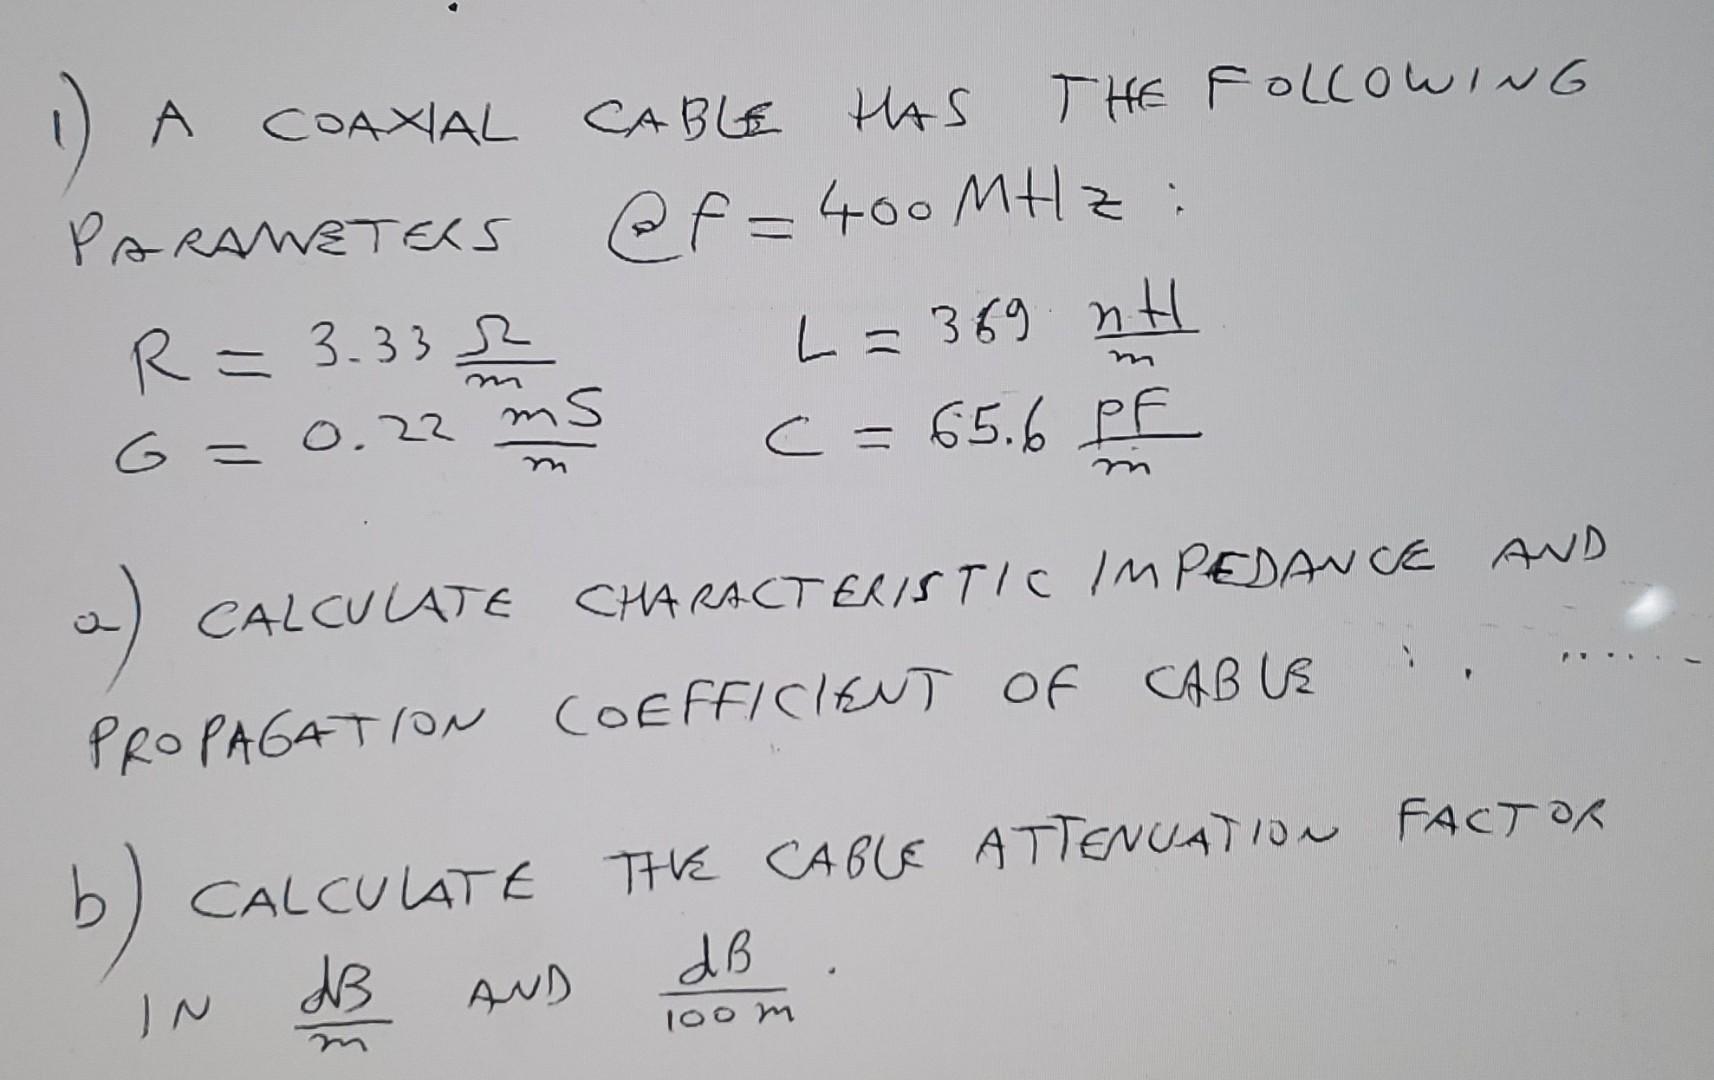 1) A COAXIAL CABLE HAS THE FOLLOWING
PARAMETERS @f = 400 MHz :
R = 3.33 Ω/m L = 369 nH/m
G = 0.22 mS/m C = 65.6 pF/m
a) CALCULATE CHARACTERISTIC IMPEDANCE AND
PROPAGATION COEFFICIENT OF CABLE
b) CALCULATE THE CABLE ATTENUATION FACTOR
IN dB/m AND dB/100 m .